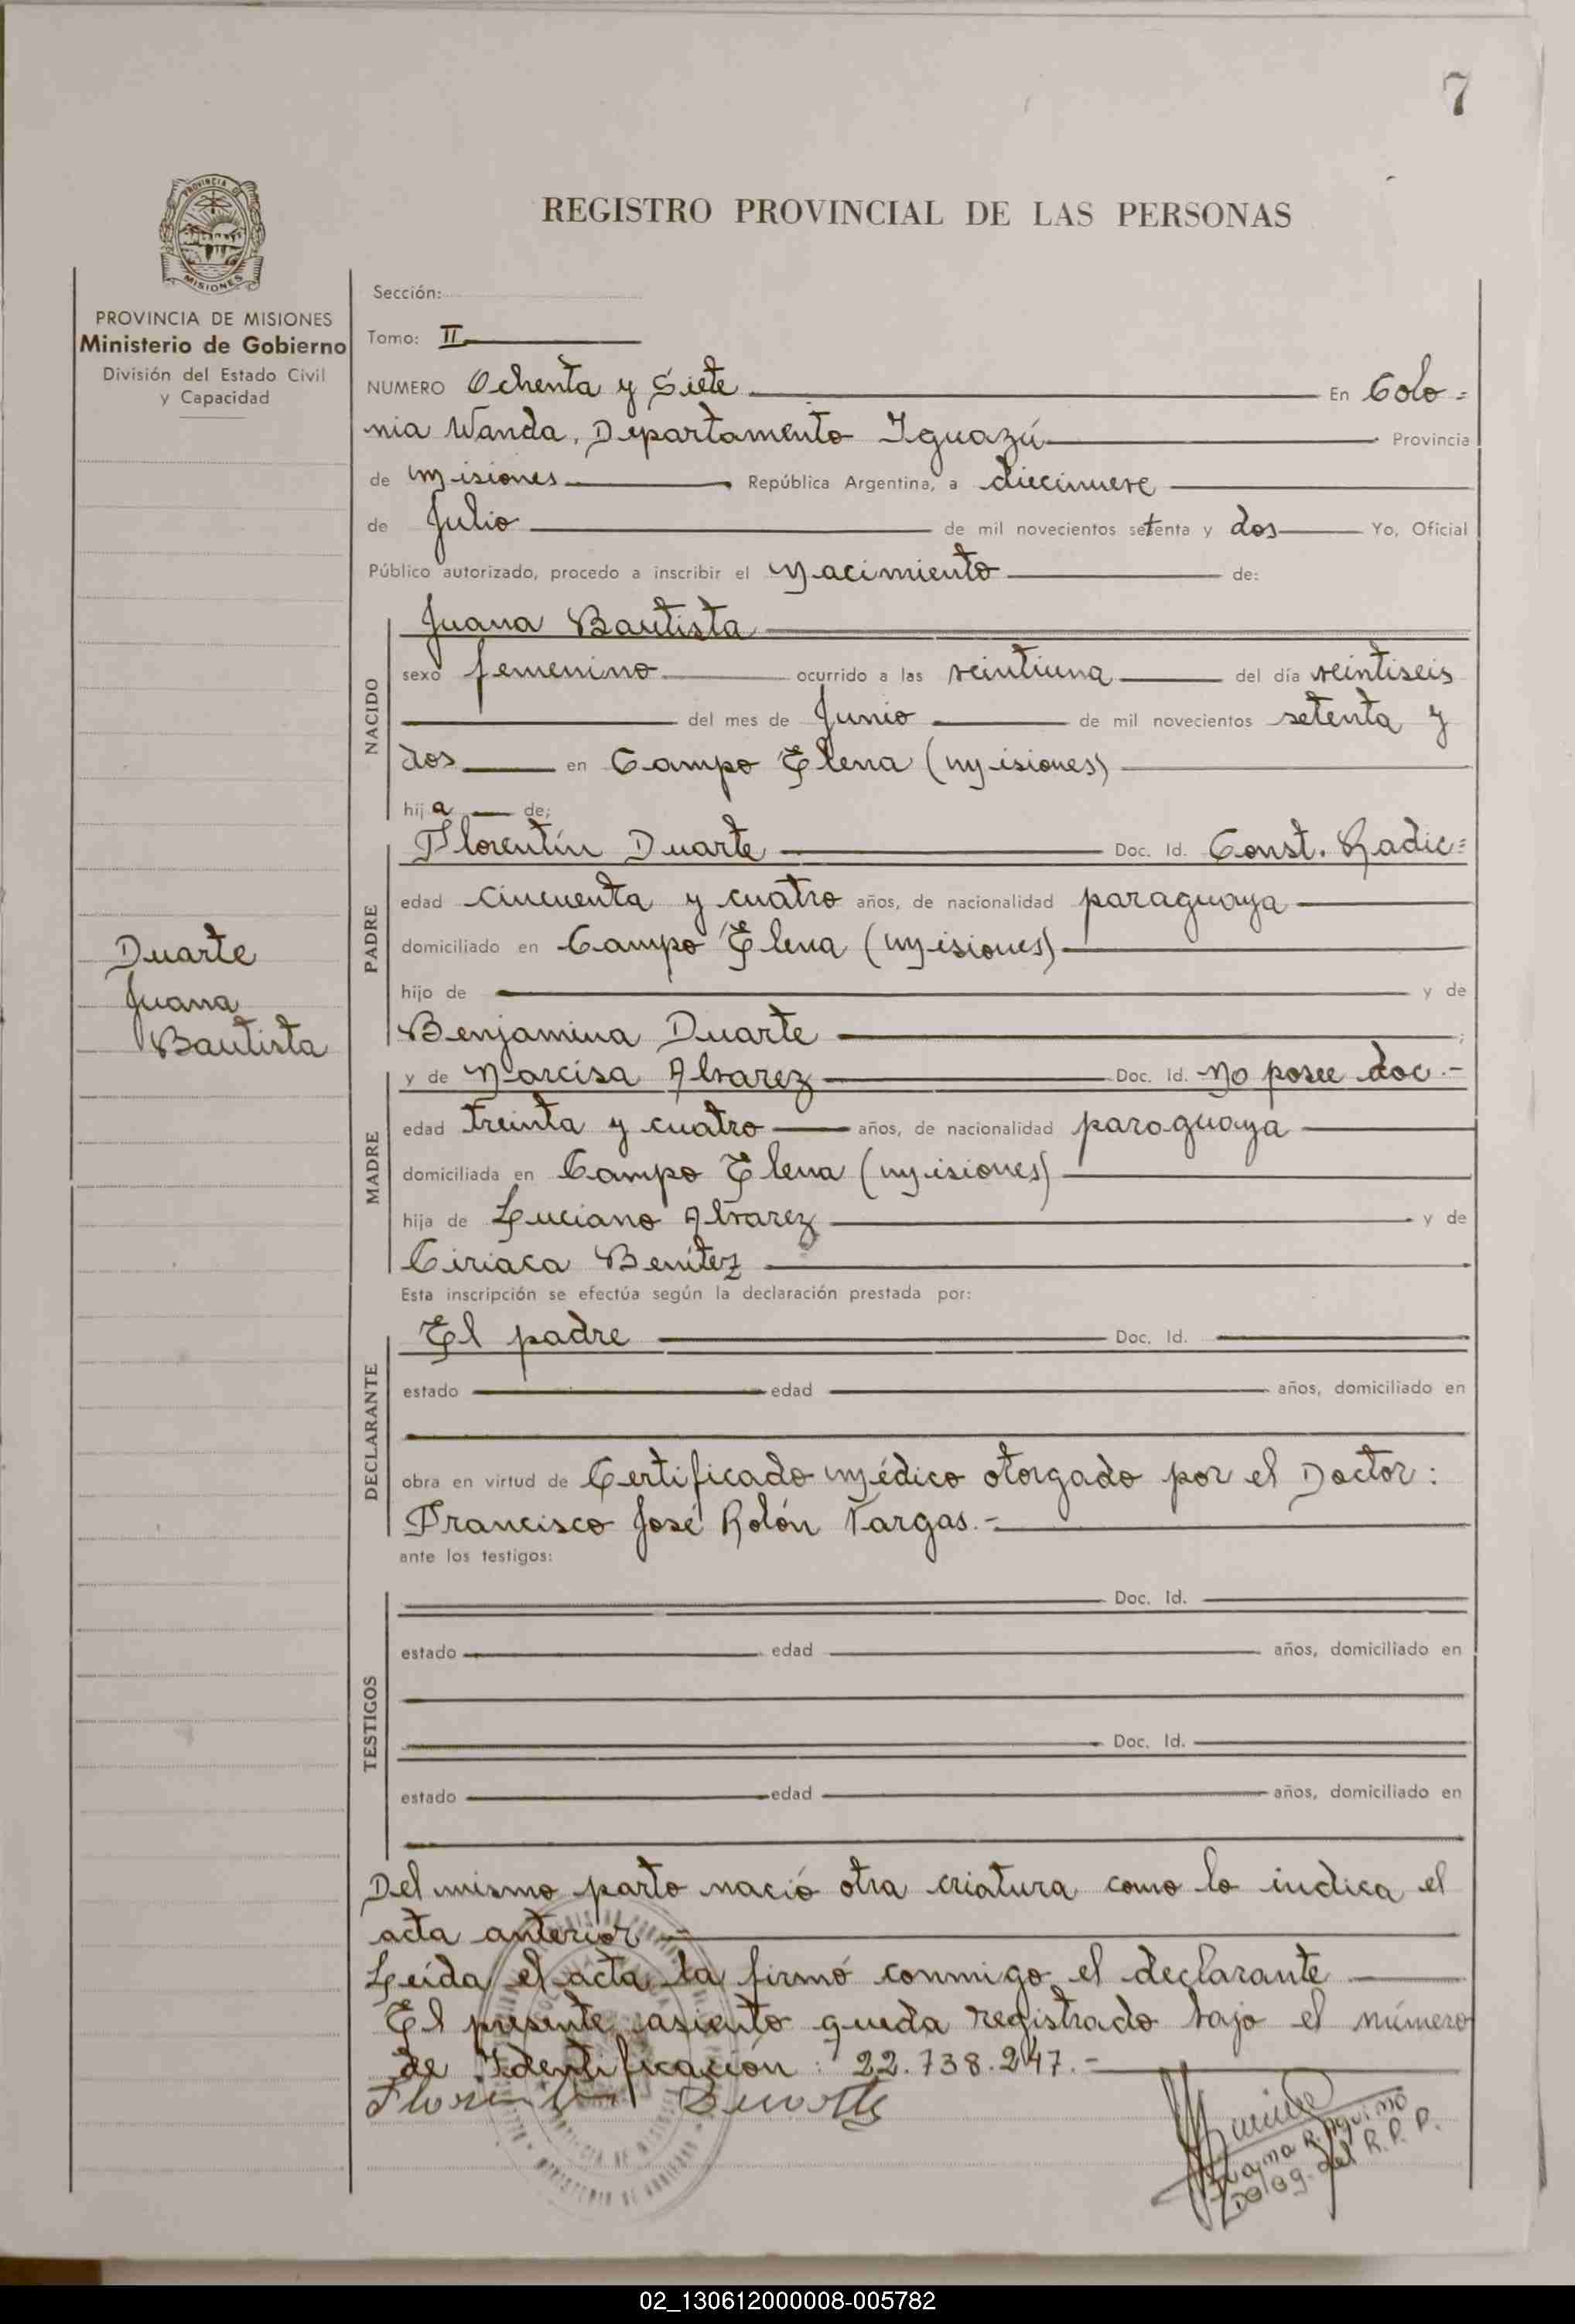 7
PROVINCIA DE
MISIONES
REGISTRO PROVINCIAL DE LAS PERSONAS
PROVINCIA DE MISIONES
Ministerio de Gobierno
División del Estado Civil
y Capacidad
Duarte
Juana
Bautista
Sección:
Tomo: II
NUMERO Ochenta y Siete En Colo=
nia Wanda, Departamento Iguazú Provincia
de Misiones República Argentina, a diecinueve
de Julio de mil novecientos setenta y dos Yo, Oficial
Público autorizado, procedo a inscribir el Nacimiento de:
NACIDO
Juana Bautista
sexo femenino ocurrido a las veintiuna del día veintiseis
del mes de Junio de mil novecientos setenta y
dos en Campo Elena (Misiones)
hija de;
PADRE
Florentín Duarte Doc. Id. Const. Radic=
edad cincuenta y cuatro años, de nacionalidad paraguaya
domiciliado en Campo Elena (Misiones)
hijo de y de
Benjamina Duarte ;
MADRE
y de Narcisa Alvarez Doc. Id. No posee doc.-
edad treinta y cuatro años, de nacionalidad paraguaya
domiciliada en Campo Elena (Misiones)
hija de Luciano Alvarez y de
Ciriaca Benítez
Esta inscripción se efectúa según la declaración prestada por:
DECLARANTE
El padre Doc. Id.
estado edad años, domiciliado en
obra en virtud de Certificado Médico otorgado por el Doctor:
Francisco José Rolón Vargas.-
ante los testigos:
TESTIGOS
Doc. Id.
estado edad años, domiciliado en
Doc. Id.
estado edad años, domiciliado en
Del mismo parto nació otra criatura como lo indica el
acta anterior
Leída el acta la firmó conmigo el declarante
El presente asiento queda registrado bajo el número
de Identificación: 22.738.247.-
Florentin Duarte
Juana R. Aquino
Deleg. del R. P. P.
02_130612000008-005782